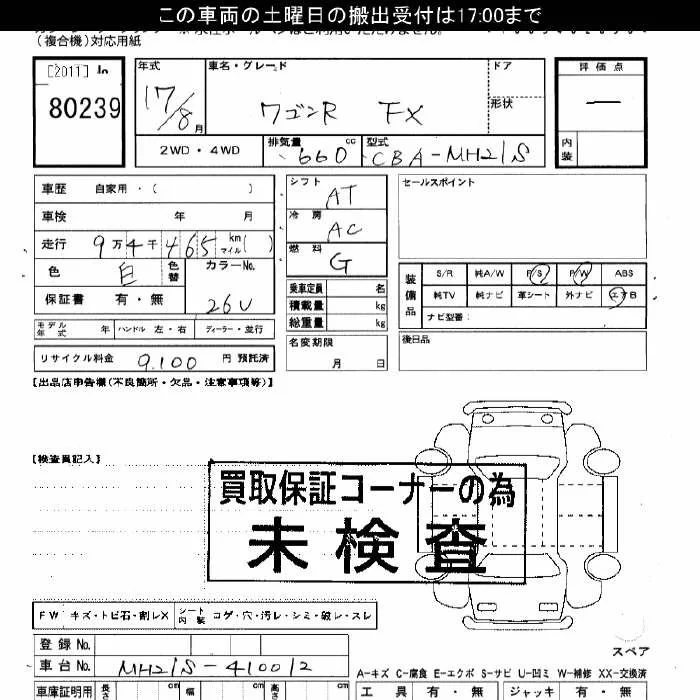 この車両の土曜日の搬出受付は17:00まで
(複合機)対応用紙
[2011]
80239
年式 17/8月
車名・グレード ワゴンR FX
ドア
形状
評価点
—
内装
2WD・4WD
排気量 660 cc
型式 CBA-MH21S
車歴 自家用・( )
車検 年 月
走行 9万4千465 km マイル( )
色 白 色替
カラーNo. 26U
保証書 有・無
モデル年式 年 ハンドル 左・右 ディーラー・並行
リサイクル料金 9,100 円 預託済
シフト AT
冷房 AC
燃料 G
乗車定員 名
積載量 kg
総重量 kg
名変期限
月 日
セールスポイント
装備品
S/R 純A/W P/S P/W ABS
純TV 純ナビ 革シート 外ナビ エアB
ナビ型番:
後日品
【出品店申告欄(不良箇所・欠品・注意事項等)】
【検査員記入】
買取保証コーナーの為
未検査
FW キズ・トビ石・割レX シート内装 コゲ・穴・汚レ・シミ・破レ・スレ
登録No.
車台No. MH21S-410012
スペア
A-キズ C-腐食 E-エクボ S-サビ U-凹ミ W-補修 XX-交換済
車庫証明用 長さ cm 幅 cm 高さ cm
工具 有・無 ジャッキ 有・無